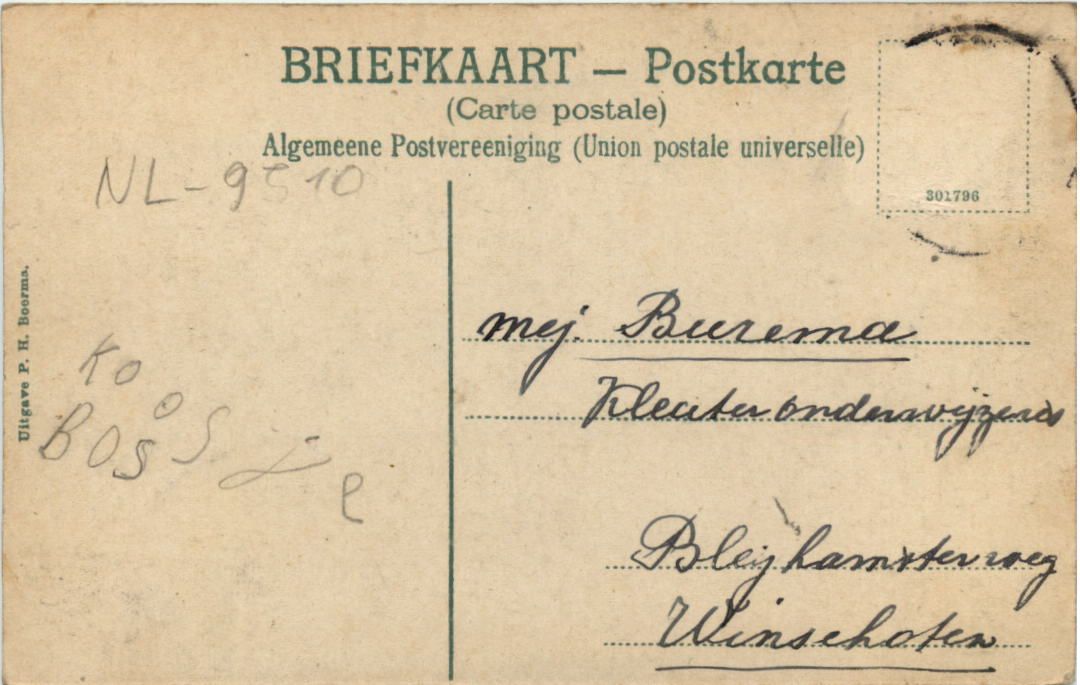 BRIEFKAART — Postkarte
(Carte postale)
Algemeene Postvereeniging (Union postale universelle)
301796
NL-9510
Uitgave P. H. Boorma.
Koos
Bosje
mej. Burema
Kleuteronderwijzeres
Bleijhamsterweg
Winschoten